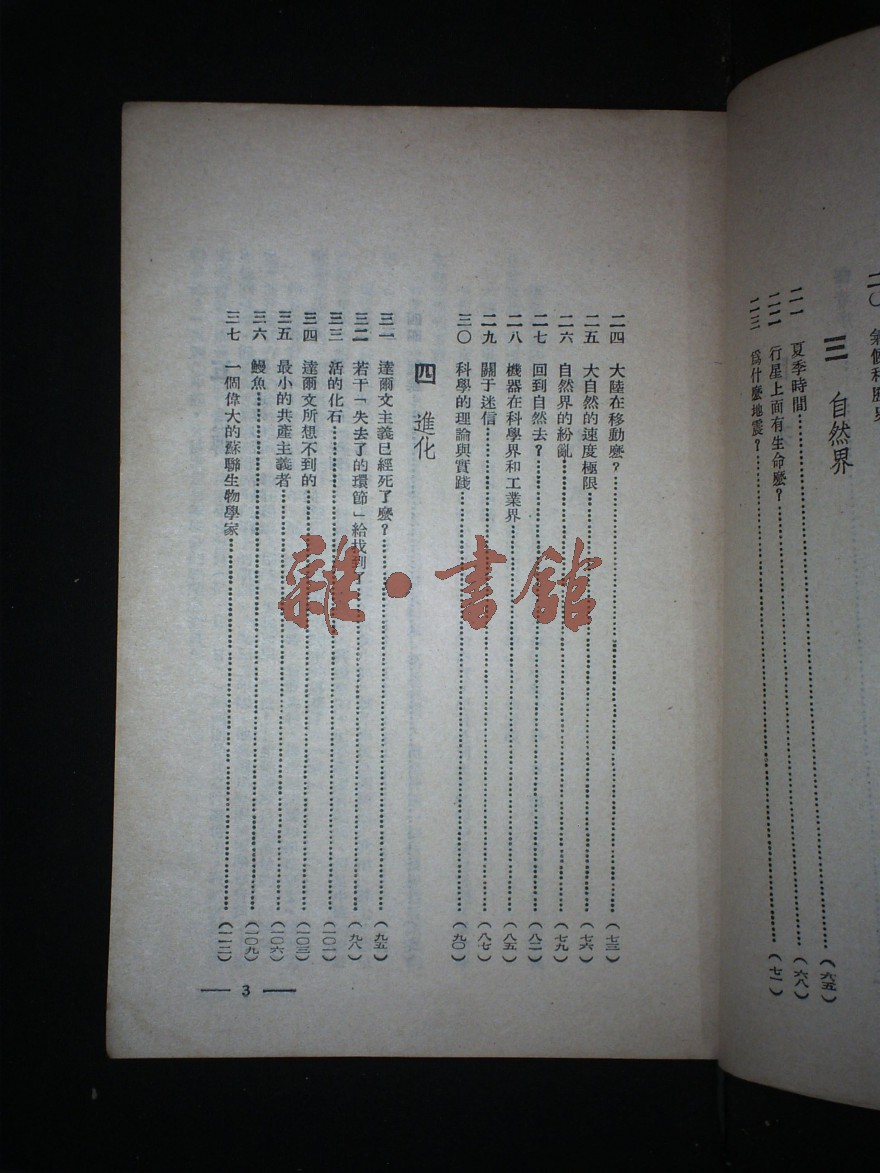 二〇 氣候和歷史
三 自然界
二一 夏季時間………(六五)
二二 行星上面有生命麼？………(六八)
二三 爲什麼地震？………(七一)
二四 大陸在移動麼？………(七三)
二五 大自然的速度極限………(七六)
二六 自然界的紛亂………(七九)
二七 回到自然去？………(八二)
二八 機器在科學界和工業界………(八五)
二九 關于迷信………(八七)
三〇 科學的理論與實踐………(九〇)
四 進化
三一 達爾文主義已經死了麼？………(九五)
三二 若干「失去了的環節」給找到了………(九八)
三三 活的化石………(一〇一)
三四 達爾文所想不到的………(一〇三)
三五 最小的共產主義者………(一〇六)
三六 鰻魚………(一〇九)
三七 一個偉大的蘇聯生物學家………(一一二)
— 3 —
雜·書館